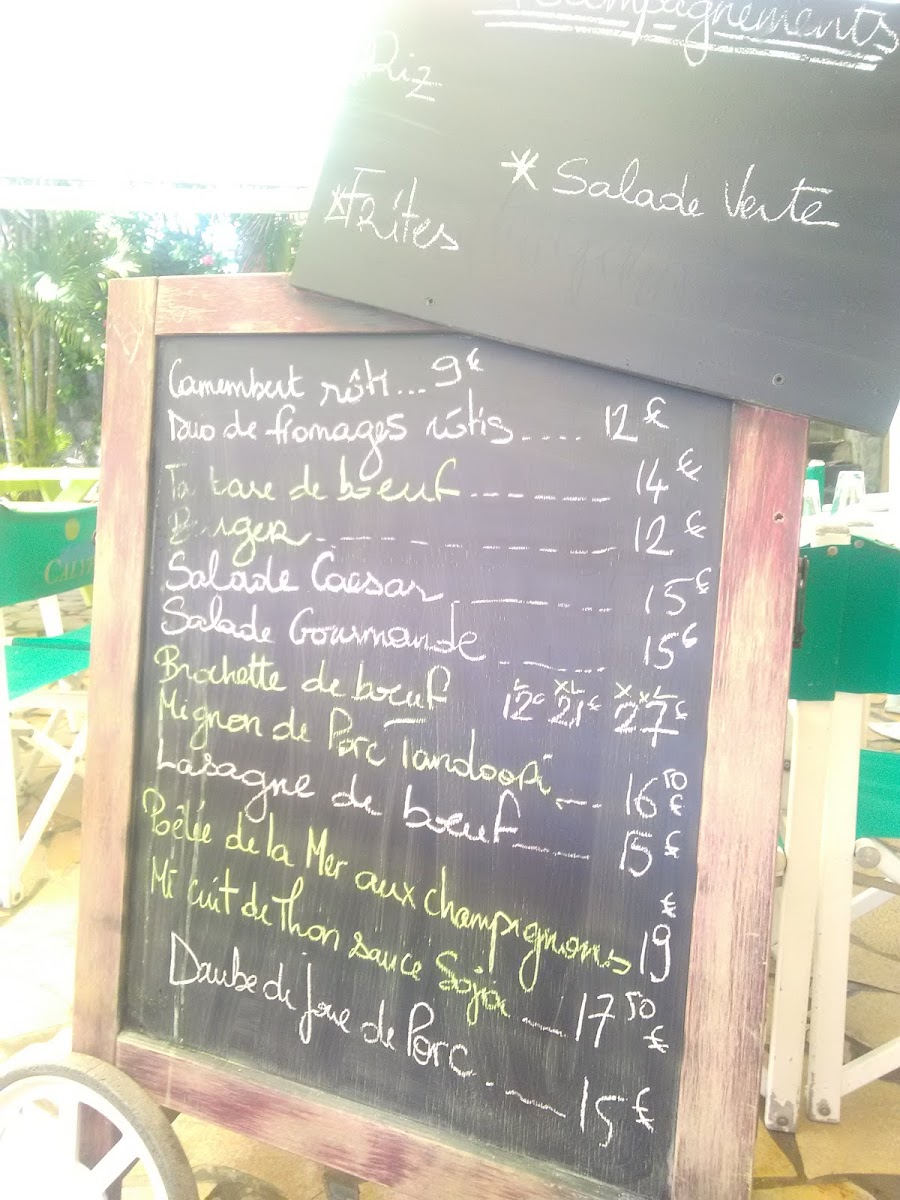 Accompagnements
Riz
*Frites
* Salade Verte
Camembert rôti... 9€
Duo de fromages rôtis.... 12€
Tartare de boeuf------- 14€
Burger--------- 12€
Salade Caesar------ 15€
Salade Gourmande------ 15€
Brochette de boeuf L 12€ XL 21€ XXL 27€
Mignon de Porc Tandoori--- 16€50
Lasagne de boeuf---- 15€
Poêlée de la Mer aux champignons 19€
Mi cuit de Thon sauce Soja--- 17€50
Daube de Joue de Porc.---- 15€